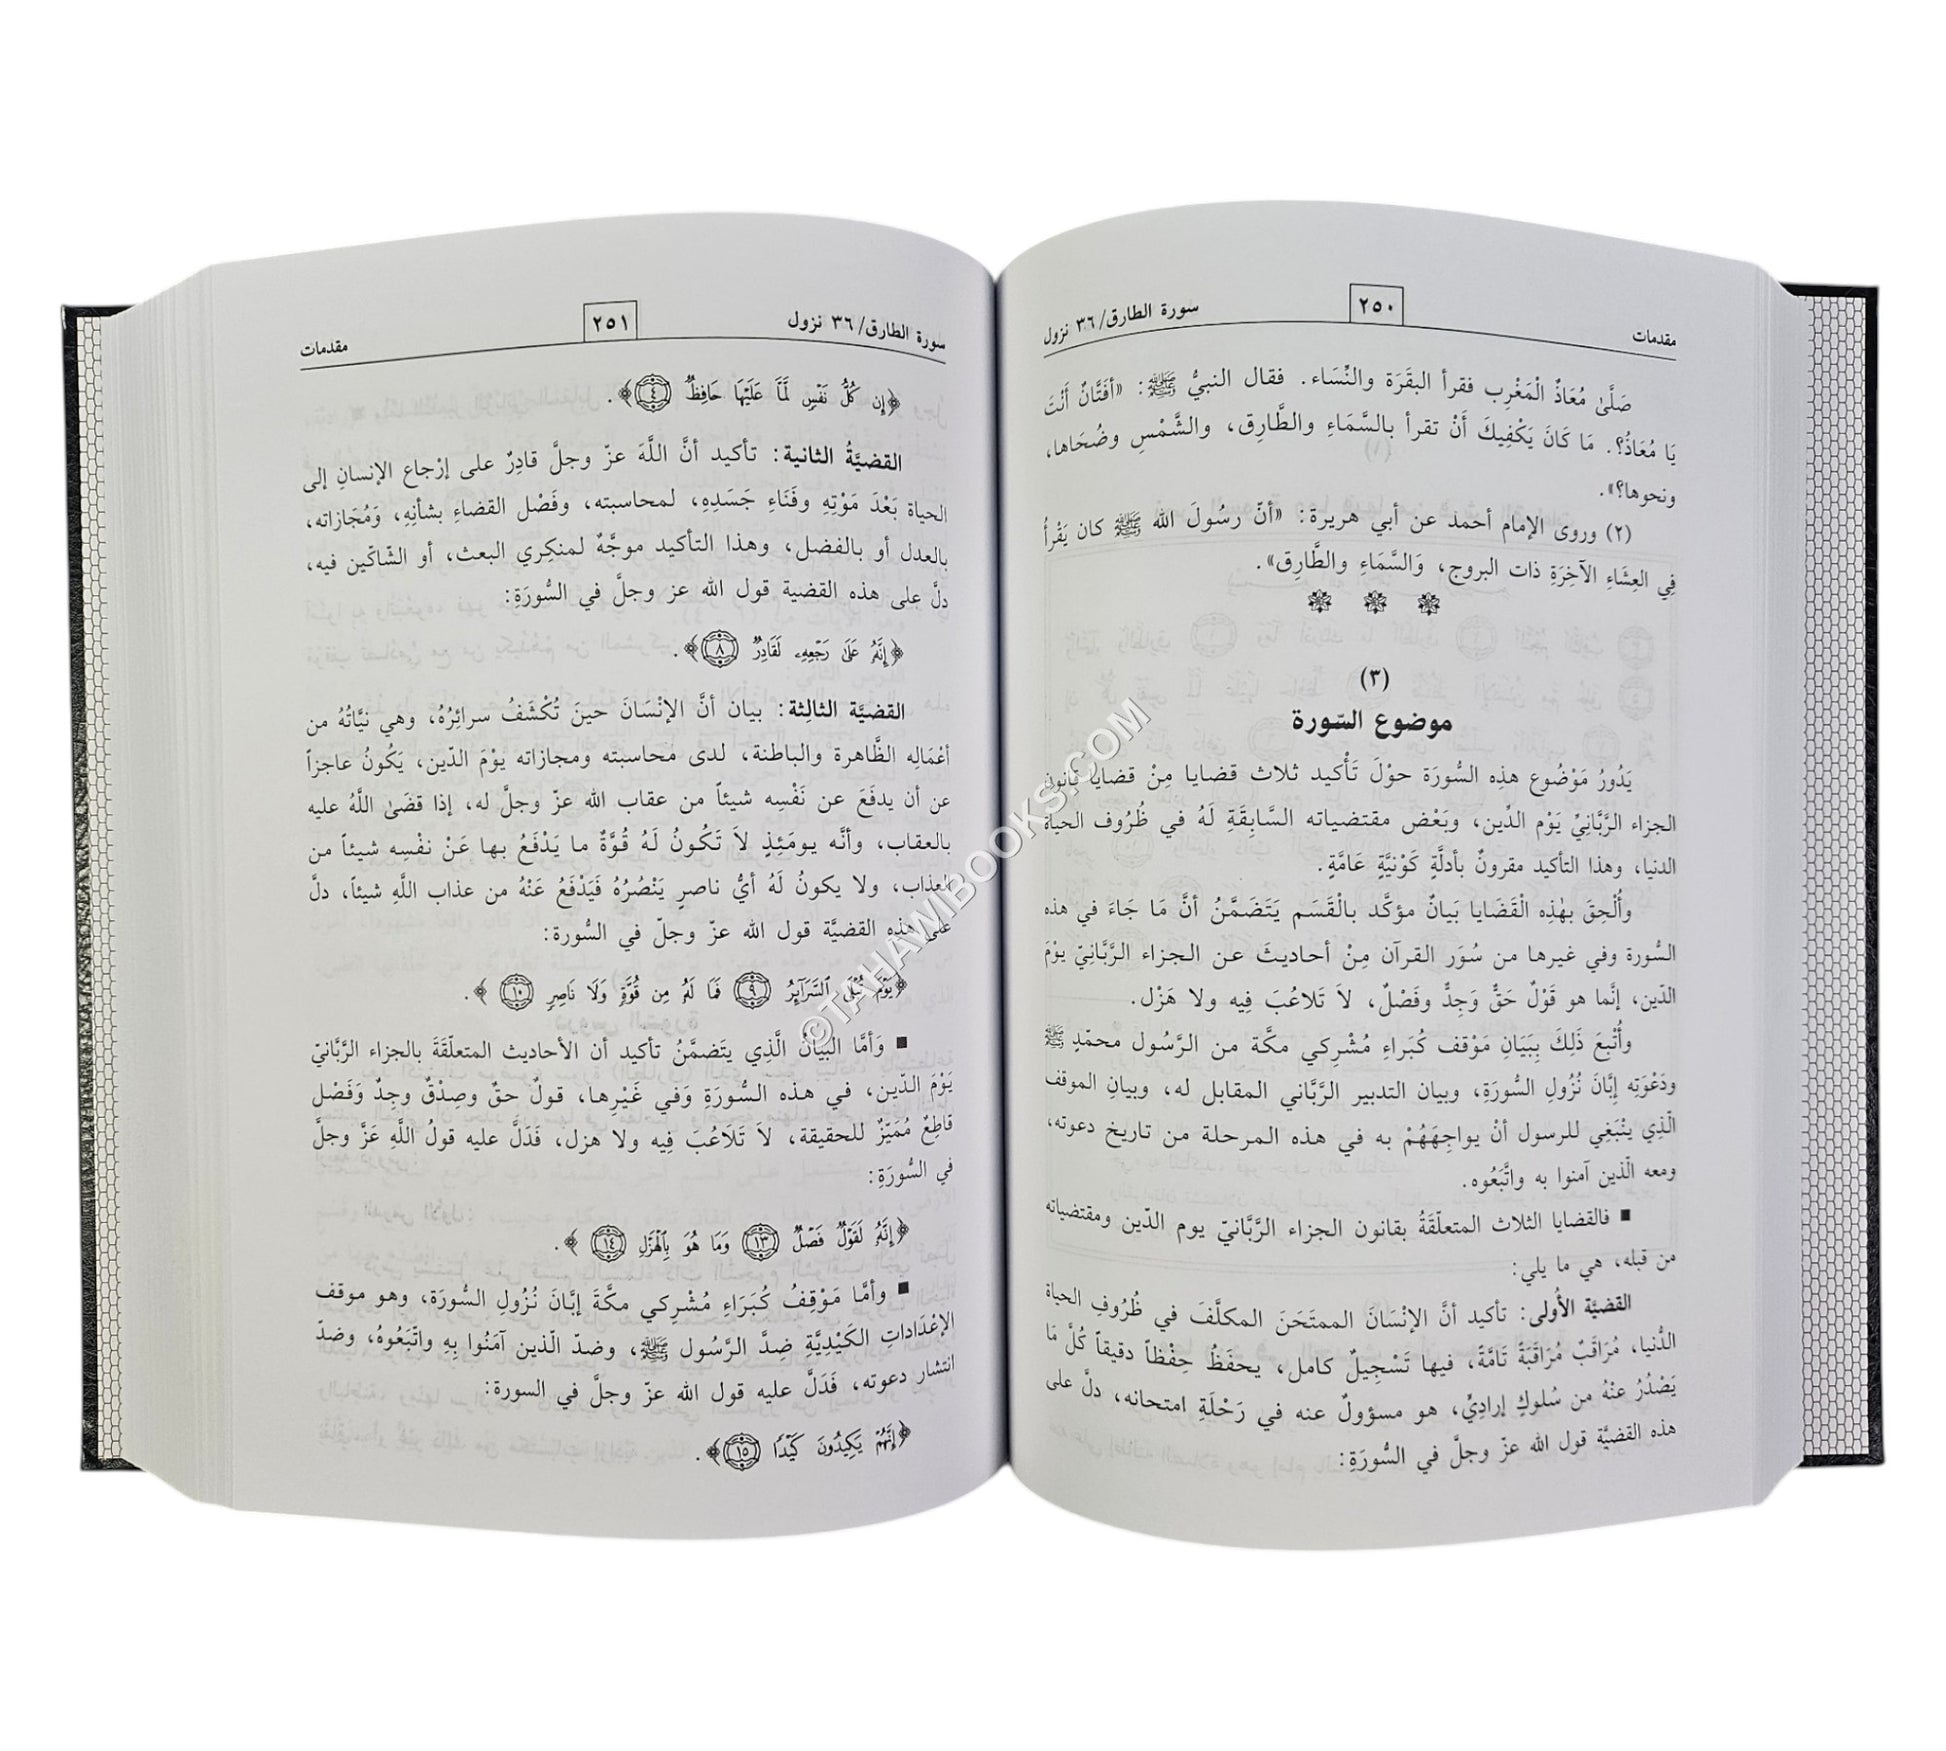 مقدمات ٢٥٠ سورة الطارق/٣٦ نزول
صَلَّىٰ مُعَاذٌ الْمَغْرِب فقرأ البقَرَة والنِّسَاء. فقال النبيُّ ﷺ: «أفَتَّانٌ أَنْتَ
يَا مُعَاذُ؟. مَا كَانَ يَكْفِيكَ أَنْ تقرأ بالسَّمَاءِ والطَّارِق، والشَّمْسِ وضُحَاها،
ونحوها؟».
(٢) وروى الإمام أحمد عن أبي هريرة: «أنّ رسُولَ الله ﷺ كان يَقْرأُ
فِي العِشَاءِ الآخِرَةِ ذات البروج، وَالسَّمَاءِ والطَّارِق».
(٣)
موضوع السّورة
يَدُورُ مَوْضُوع هذِه السُّورَة حوْلَ تَأْكيد ثلاث قضايا مِنْ قضايا قانون
الجزاء الرَّبَّانِيِّ يَوْم الدِّين، وبَعْض مقتضياته السَّابِقَةِ لَهُ في ظُرُوف الحياة
الدنيا، وهذا التأكيد مقرونٌ بأدلَّةٍ كَوْنيَّةٍ عَامَّةٍ.
وأُلْحِقَ بهٰذِه الْقَضَايا بَيَانٌ مؤكَّد بالْقَسَم يَتَضَمَّنُ أنَّ مَا جَاءَ في هذه
السُّورة وفي غيرها من سُوَر القرآن مِنْ أحاديثَ عن الجزاء الرَّبَّانِيّ يوْمَ
الدّين، إنَّما هو قَوْل حَقٌّ وَجِدٌّ وفَصْلٌ، لاَ تَلاعُبَ فِيه ولا هَزْل.
وأُتْبِعَ ذَلِكَ بِبَيَانِ مَوْقف كُبَراءِ مُشْرِكي مكّة من الرَّسُول محمّدٍ ﷺ
ودَعْوَتِه إبَّانَ نُزُولِ السُّورَةِ، وبيان التدبير الرَّبَّاني المقابل له، وبيانِ الموقف
الّذِي ينْبَغِي للرسول أنْ يواجِهَهُمْ به في هذه المرحلة من تاريخ دعوته،
ومعه الّذين آمنوا به واتَّبَعُوه.
■ فالقضايا الثلاث المتعلّقَةُ بقانون الجزاء الرَّبَّانيّ يوم الدّين ومقتضياته
من قبله، هي ما يلي:
القضيَّة الأُولى: تأكيد أنَّ الإنْسَانَ الممتَحَنَ المكلَّفَ في ظُرُوفِ الحياة
الدُّنيا، مُرَاقَبٌ مُرَاقَبَةً تَامَّةً، فيها تَسْجِيلٌ كامل، يحفَظُ حِفْظاً دقيقاً كُلَّ مَا
يَصْدُرُ عنْهُ من سُلوكٍ إرَادِيٍّ، هو مسؤولٌ عنه في رَحْلَةِ امتحانه، دلَّ على
هذه القضيَّة قول الله عزّ وجلَّ في السُّورَةِ:
سورة الطارق/٣٦ نزول ٢٥١ مقدمات
﴿إِن كُلُّ نَفْسٍ لَّمَّا عَلَيْهَا حَافِظٌ ٤﴾.
القضيَّةُ الثانية: تأكيد أنَّ اللَّهَ عزّ وجلَّ قادِرٌ على إرْجاع الإنسانِ إلى
الحياة بَعْدَ مَوْتِهِ وفَنَاءِ جَسَدِهِ، لمحاسبته، وفَصْل القضاءِ بشأنِهِ، وَمُجَازاته،
بالعدل أو بالفضل، وهذا التأكيد موجَّهٌ لمنكِري البعث، أو الشّاكّين فيه،
دلَّ على هذه القضية قول الله عز وجلَّ في السُّورَةِ:
﴿إِنَّهُ عَلَىٰ رَجْعِهِ لَقَادِرٌ ٨﴾.
القضيَّة الثالِثة: بيان أنَّ الإنْسَانَ حينَ تُكْشَفُ سرائِرُهُ، وهي نيَّاتُهُ من
أعْمَالِه الظَّاهرة والباطنة، لدى محاسبته ومجازاته يوْمَ الدّين، يَكُونُ عاجزاً
عن أن يدفَعَ عن نَفْسِه شيئاً من عقاب الله عزّ وجلَّ له، إذا قضَىٰ اللَّهُ عليه
بالعقاب، وأنَّه يومَئِذٍ لاَ تَكُونُ لَهُ قُوَّةٌ ما يَدْفَعُ بها عَنْ نفْسِه شيئاً من
العذاب، ولا يكونُ لَهُ أيُّ ناصرٍ يَنْصُرُهُ فَيَدْفَعُ عَنْهُ من عذاب اللَّهِ شيئاً، دلَّ
على هذه القضيَّة قول الله عزّ وجلّ في السُّورة:
﴿يَوْمَ تُبْلَى ٱلسَّرَآئِرُ ٩ فَمَا لَهُ مِن قُوَّةٍ وَلَا نَاصِرٍ ١٠﴾.
■ وَأمَّا البَيَانُ الَّذِي يتَضمَّنُ تأكيد أن الأحاديث المتعلّقَةَ بالجزاء الرَّبَّانيّ
يَوْمَ الدّين، في هذه السُّورَةِ وَفي غَيْرِها، قولٌ حقٌ وصِدْقٌ وجِدٌ وَفَصْل
قاطِعٌ مُمَيِّزٌ للحقيقة، لاَ تَلَاعُبَ فِيه ولا هزل، فَدَلَّ عليه قولُ اللَّهِ عَزَّ وجلَّ
في السُّورَةِ:
﴿إِنَّهُ لَقَوْلٌ فَصْلٌ ١٣ وَمَا هُوَ بِٱلْهَزْلِ ١٤﴾.
■ وأمَّا مَوْقِفُ كُبَرَاءِ مُشْرِكي مكَّةَ إبَّانَ نُزُولِ السُّورَة، وهو موقف
الإعْدَاداتِ الكَيْدِيَّةِ ضِدَّ الرَّسُول ﷺ، وضدّ الّذين آمَنُوا بِهِ واتّبَعُوهُ، وضدّ
انتشار دعوته، فَدَلَّ عليه قول الله عزّ وجلَّ في السورة:
﴿إِنَّهُمْ يَكِيدُونَ كَيْدًا ١٥﴾.
©TAHAWIBOOKS.COM